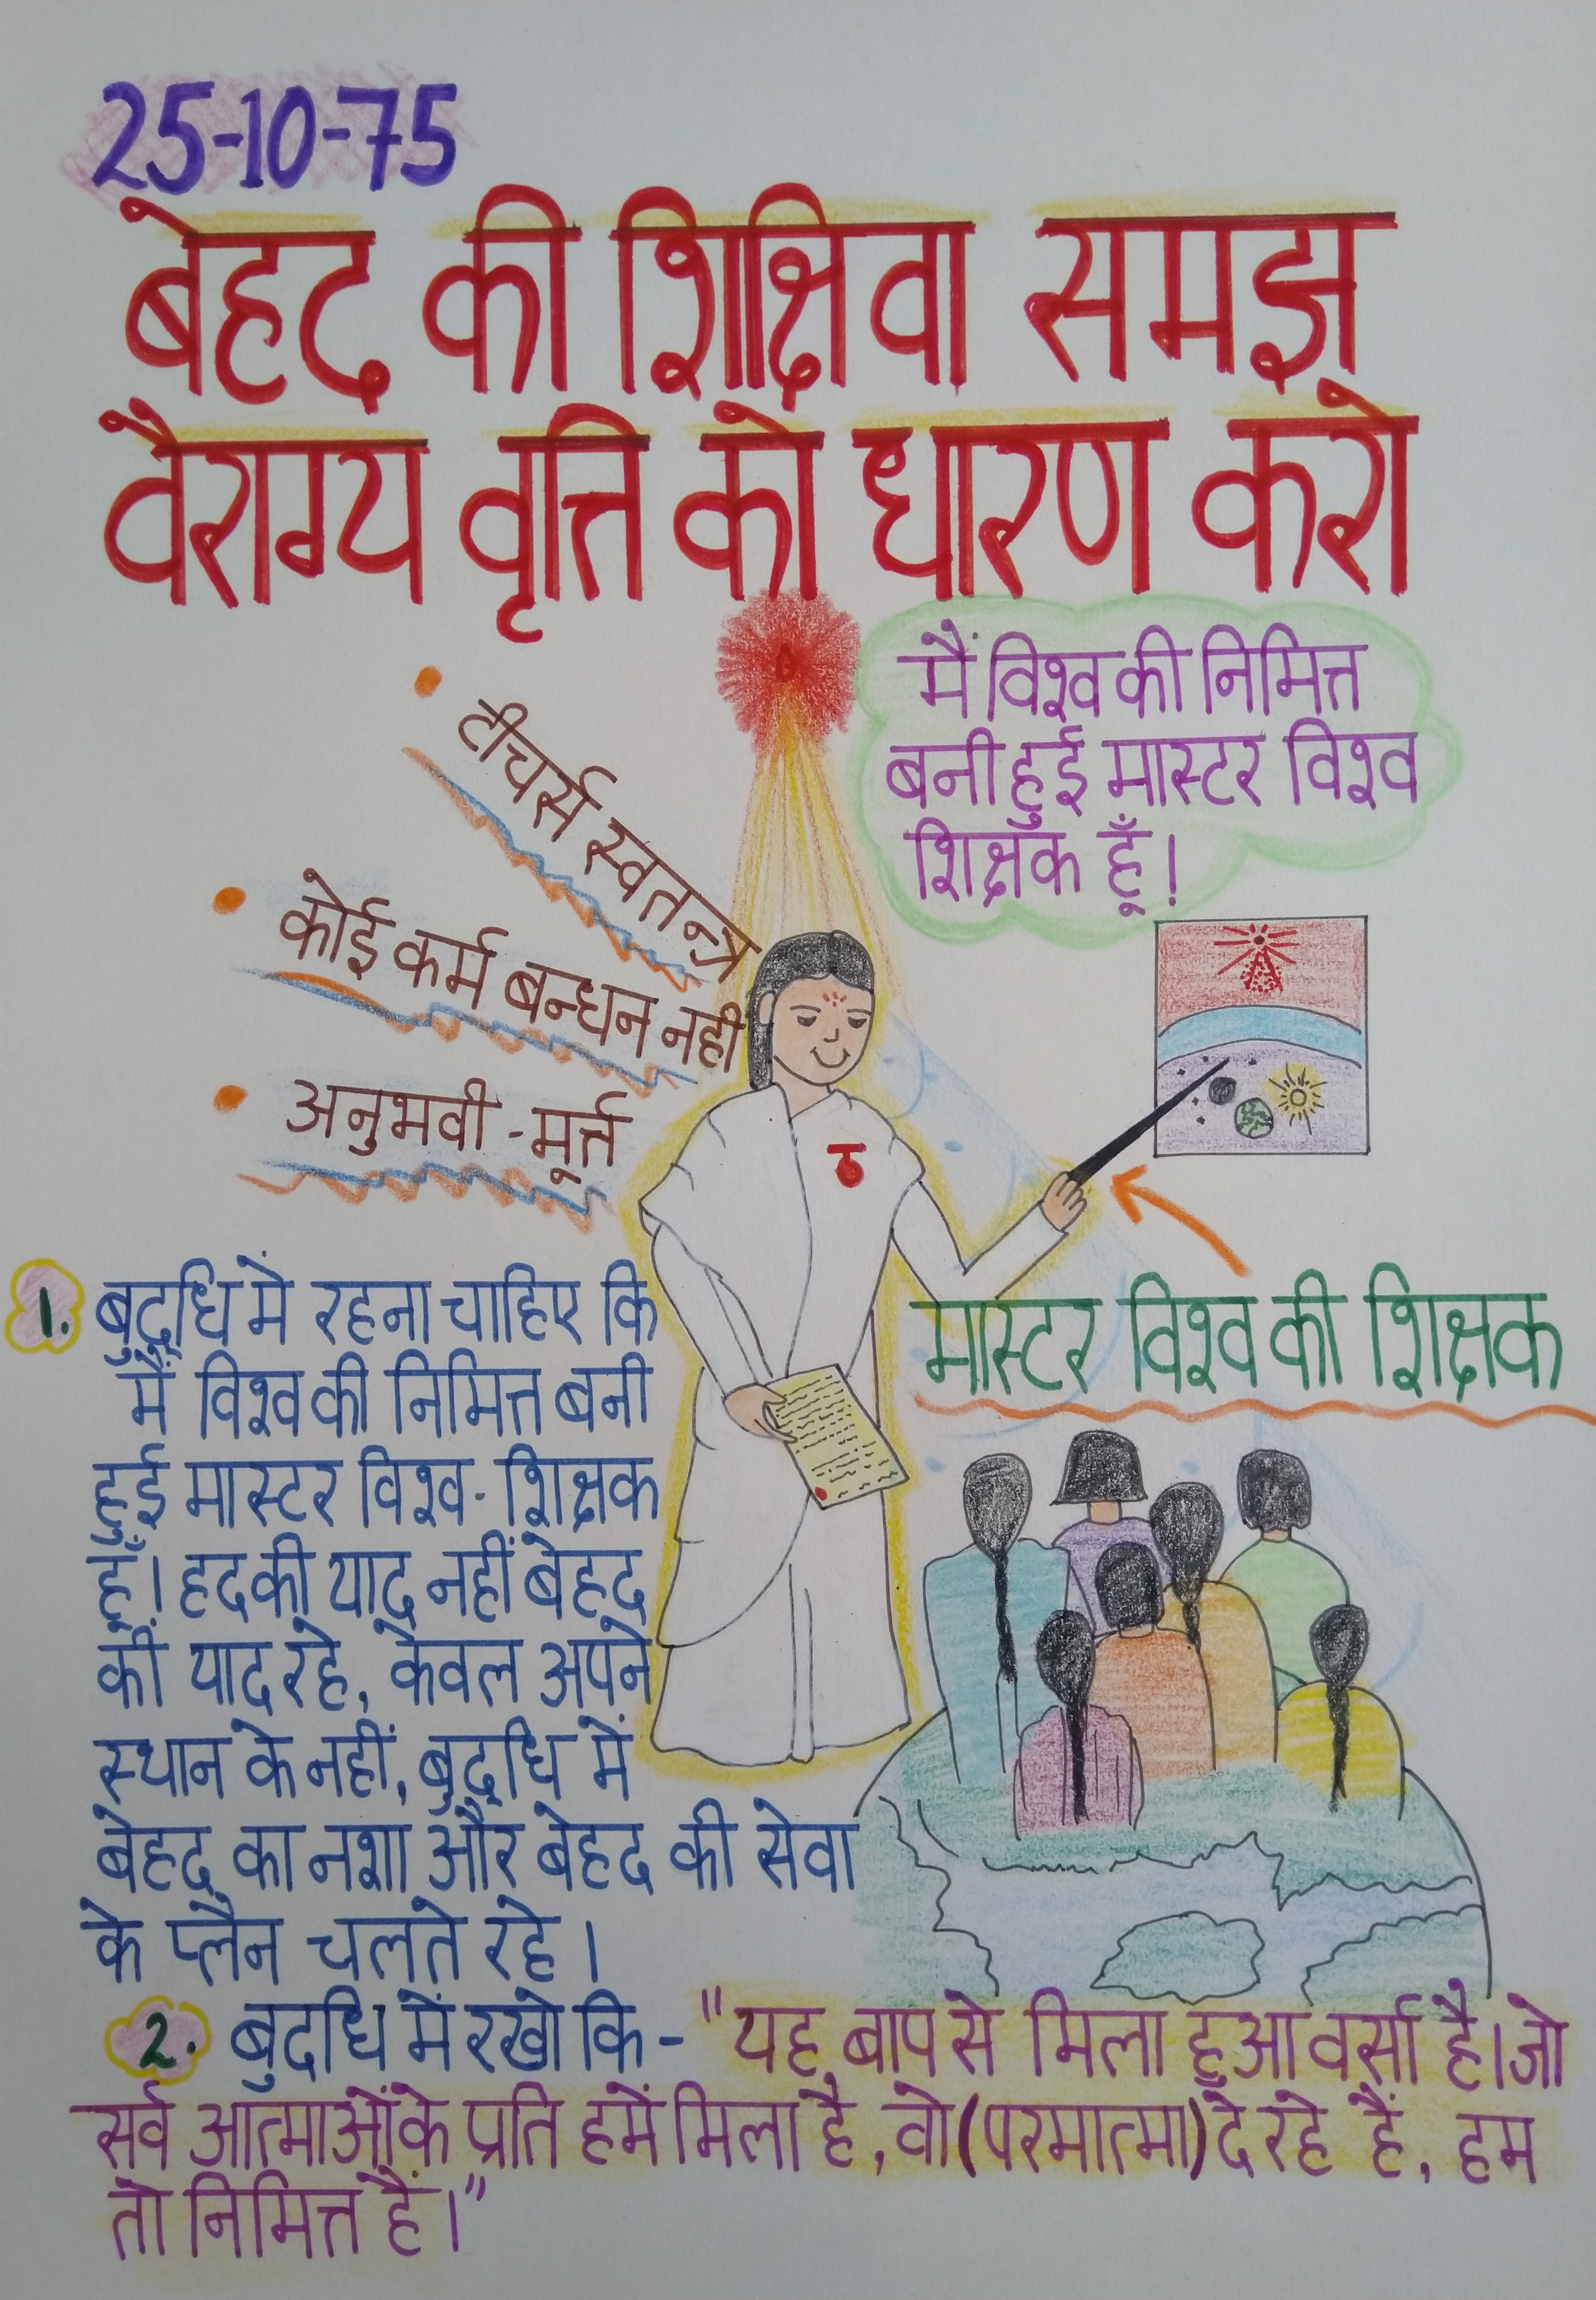 25-10-75
बेहद की शिक्षिवा समझ
वैराग्य वृत्ति को धारण करो
मैं विश्व की निमित्त
बनी हुई मास्टर विश्व
शिक्षक हूँ।
टीचर्स स्वतन्त्र
कोई कर्म बन्धन नही
अनुभवी-मूर्त्त
मास्टर विश्व की शिक्षक
1. बुद्धि मे रहना चाहिए कि
मैं विश्व की निमित्त बनी
हुई मास्टर विश्व-शिक्षक
हूँ। हद की याद नहीं बेहद
की याद रहे, केवल अपने
स्थान के नहीं, बुद्धि में
बेहद का नशा और बेहद की सेवा
के प्लैन चलते रहे।
2. बुद्धि में रखो कि- "यह बाप से मिला हुआ वर्सा है। जो
सर्व आत्माओं के प्रति हमें मिला है, वो (परमात्मा) दे रहे हैं, हम
तो निमित्त हैं।"